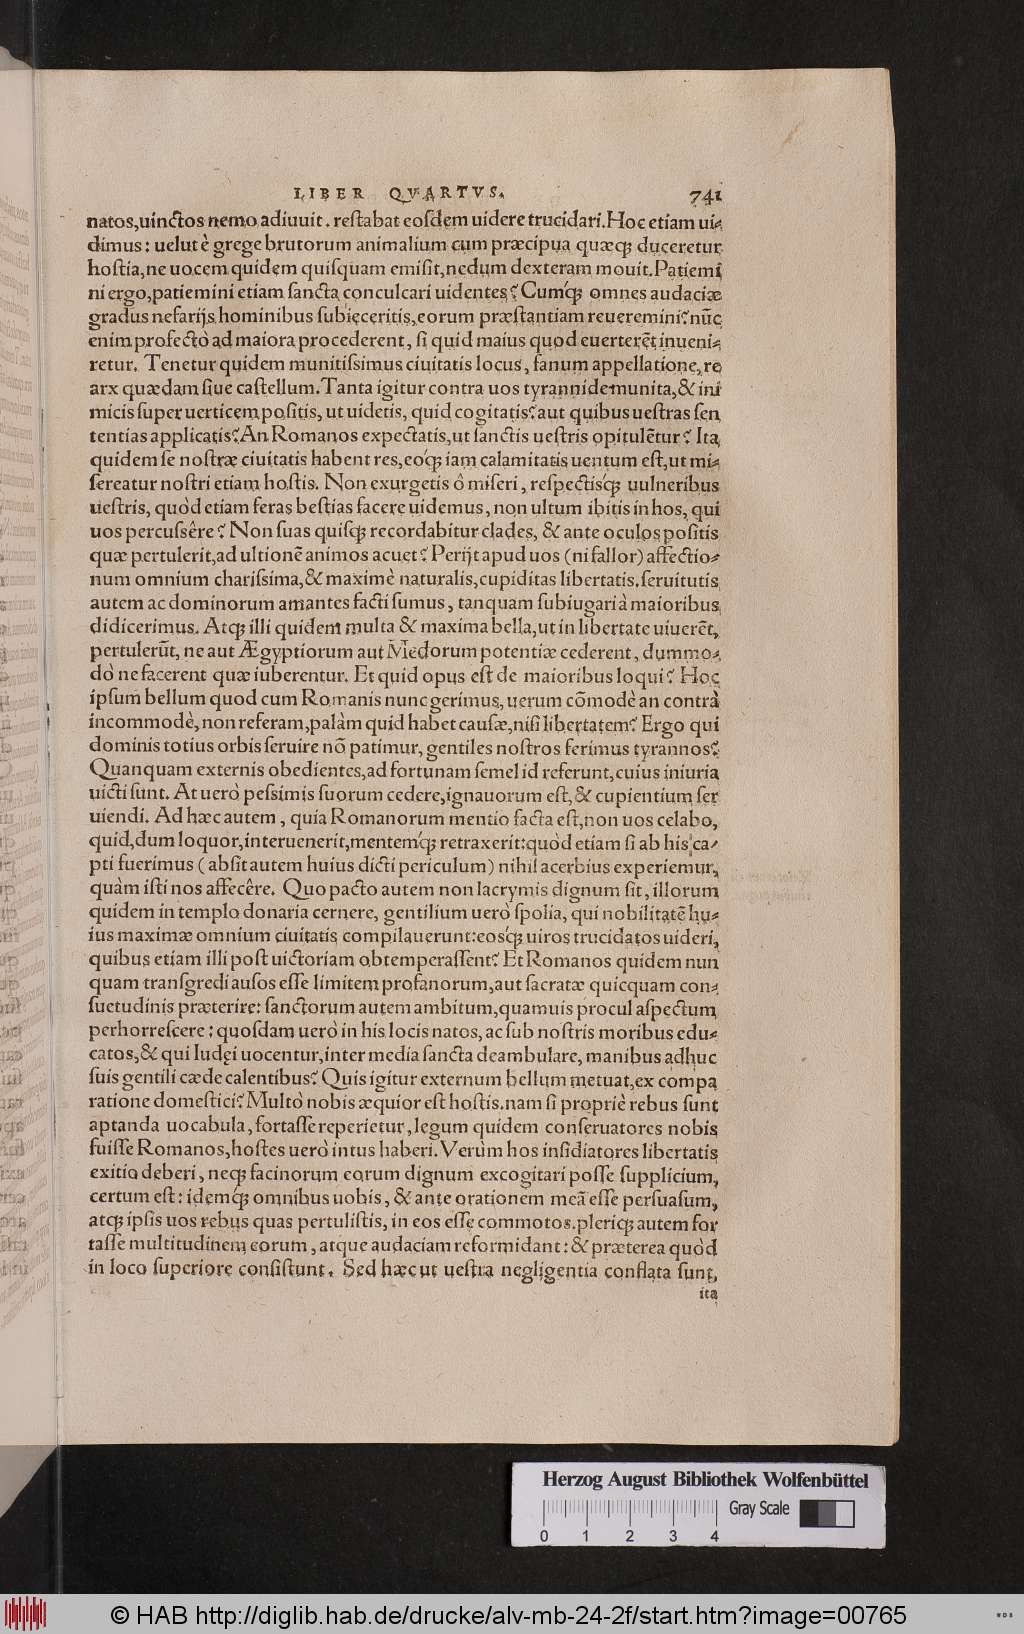 LIBER QVARTVS. 741
natos,uinctos nemo adiuuit. reſtabat eoſdem uidere trucidari. Hoc etiam ui-
dimus: uelut è grege brutorum animalium cum præcipua quæcꝫ duceretur
hoſtia, ne uocem quidem quiſquam emiſit, nedum dexteram mouit. Patiemi
ni ergo, patiemini etiam ſancta conculcari uidentes? Cumꝙ́ omnes audaciæ
gradus nefarijs hominibus ſubieceritis, eorum præſtantiam reueremini? nũc
enim profectò ad maiora procederent, ſi quid maius quod euerterēt inueni-
retur. Tenetur quidem munitiſsimus ciuitatis locus, fanum appellatione, re
arx quædam ſiue caſtellum. Tanta igitur contra uos tyrannide munita, & ini
micis ſuper uerticem poſitis, ut uidetis, quid cogitatis? aut quibus ueſtras ſen
tentias applicatis? An Romanos expectatis, ut ſanctis ueſtris opitulētur? Ita
quidem ſe noſtræ ciuitatis habent res, eoꝙ́ iam calamitatis uentum eſt, ut mi-
ſereatur noſtri etiam hoſtis. Non exurgetis ô miſeri, reſpectiſꝙ uulneribus
ueſtris, quòd etiam feras beſtias facere uidemus, non ultum ibitis in hos, qui
uos percuſsêre? Non ſuas quiſꝙ recordabitur clades, & ante oculos poſitis
quæ pertulerit, ad ultionē animos acuet? Perijt apud uos (ni fallor) affectio-
num omnium chariſsima, & maximè naturalis, cupiditas libertatis. ſeruitutis
autem ac dominorum amantes facti ſumus, tanquam ſubiugari à maioribus
didicerimus. Atꝙ illi quidem multa & maxima bella, ut in libertate uiuerēt,
pertulerũt, ne aut Ægyptiorum aut Medorum potentiæ cederent, dummo-
dò ne facerent quæ iuberentur. Et quid opus eſt de maioribus loqui? Hoc
ipſum bellum quod cum Romanis nunc gerimus, uerum cõmodè an contrà
incommodè, non referam, palàm quid habet cauſæ, niſi libertatem? Ergo qui
dominis totius orbis ſeruire nõ patimur, gentiles noſtros ferimus tyrannos?
Quanquam externis obedientes, ad fortunam ſemel id referunt, cuius iniuria
uicti ſunt. At uerò peſsimis ſuorum cedere, ignauorum eſt, & cupientium ſer
uiendi. Ad hæc autem, quia Romanorum mentio facta eſt, non uos celabo,
quid, dum loquor, interuenerit, mentemꝙ́ retraxerit: quòd etiam ſi ab his ca-
pti fuerimus (abſit autem huius dicti periculum) nihil acerbius experiemur,
quàm iſti nos affecêre. Quo pacto autem non lacrymis dignum ſit, illorum
quidem in templo donaria cernere, gentilium uerò ſpolia, qui nobilitatē hu-
ius maximæ omnium ciuitatis compilauerunt: eoſꝙ́ uiros trucidatos uideri,
quibus etiam illi poſt uictoriam obtemperaſſent? Et Romanos quidem nun
quam tranſgredi auſos eſſe limitem profanorum, aut ſacratæ quicquam con-
ſuetudinis præterire: ſanctorum autem ambitum, quamuis procul aſpectum
perhorreſcere: quoſdam uerò in his locis natos, ac ſub noſtris moribus edu-
catos, & qui Iudęi uocentur, inter media ſancta deambulare, manibus adhuc
ſuis gentili cæde calentibus? Quis igitur externum bellum metuat, ex compa
ratione domeſtici? Multò nobis æquior eſt hoſtis. nam ſi propriè rebus ſunt
aptanda uocabula, fortaſſe reperietur, legum quidem conſeruatores nobis
fuiſſe Romanos, hoſtes uerò intus haberi. Verùm hos inſidiatores libertatis
exitio deberi, neꝙ facinorum eorum dignum excogitari poſſe ſupplicium,
certum eſt: idemꝙ́ omnibus uobis, & ante orationem meā eſſe perſuaſum,
atꝙ ipſis uos rebus quas pertuliſtis, in eos eſſe commotos. pleriꝙ autem for
taſſe multitudinem eorum, atque audaciam reformidant: & præterea quòd
in loco ſuperiore conſiſtunt. Sed hæc ut ueſtra negligentia conflata ſunt,
ita
Herzog August Bibliothek Wolfenbüttel
Gray Scale
0 1 2 3 4
© HAB http://diglib.hab.de/drucke/alv-mb-24-2f/start.htm?image=00765